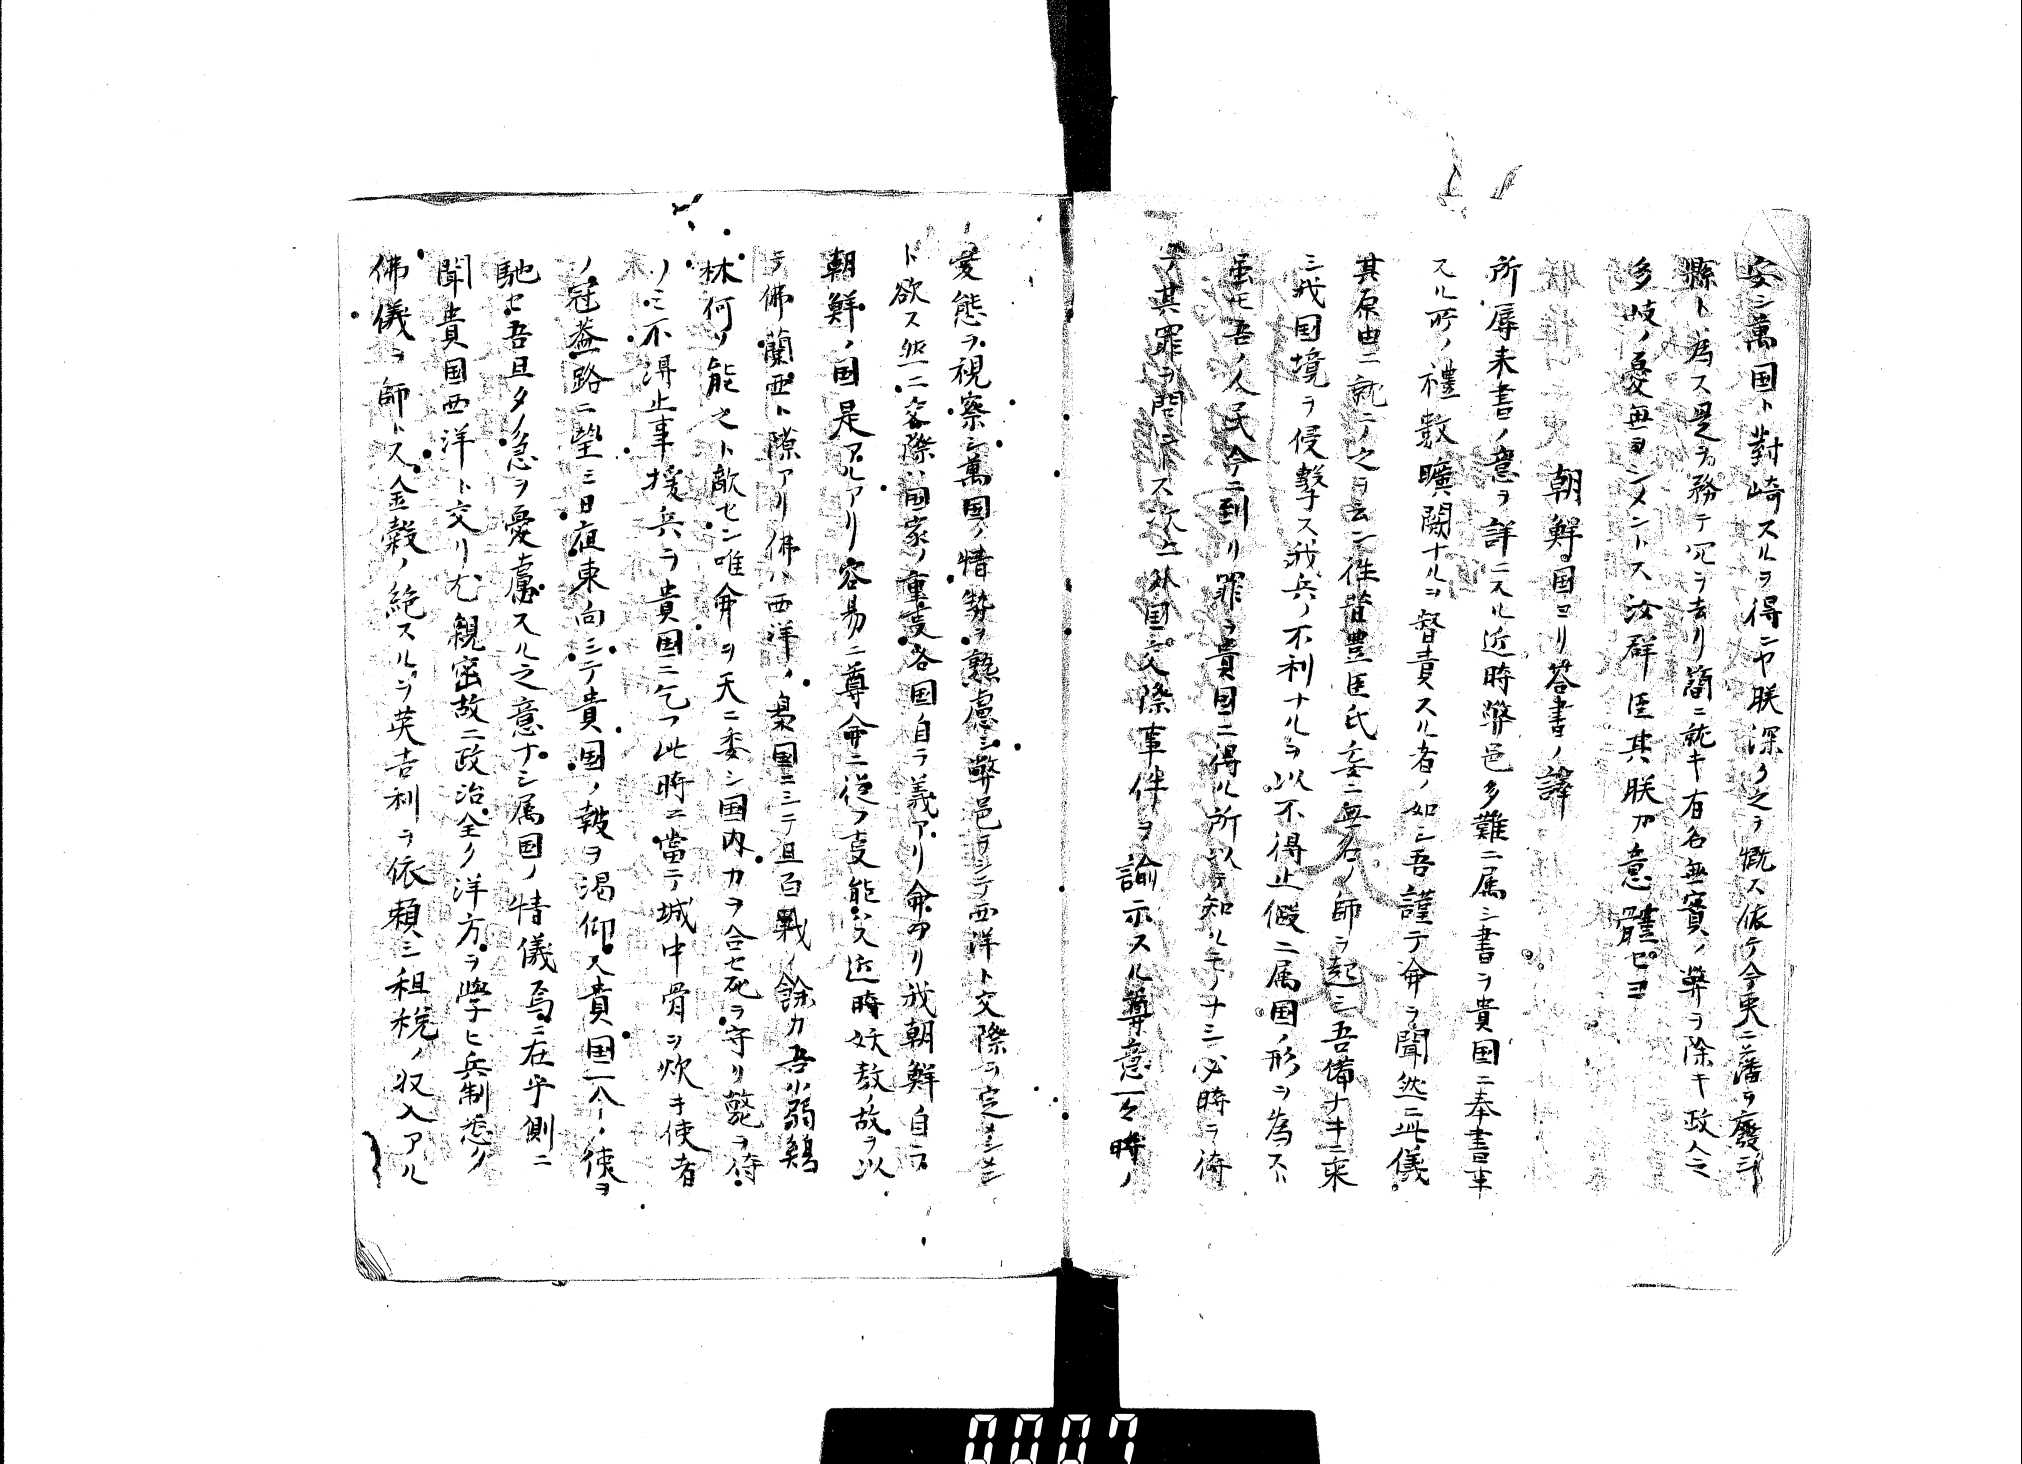 安シ萬国ト對峙スルヲ得ニヤ朕深ク之ヲ慨ス依テ今更ニ藩ヲ廢シ
縣ト為ス是ヲ務テ冗ヲ去リ簡ニ就キ有名無實ノ弊ヲ除キ政令
多岐ノ憂無ヲシメントス汝群臣其朕カ意ヲ體セヨ
朝鮮国ヨリ答書ノ譯
所辱来書ノ意ヲ詳ニスル近時弊邑多難ニ属シ書ヲ貴国ニ奉書
スル所ノ禮数曠闕ナルヲ督責スル者ノ如シ吾謹テ命ヲ聞然ニ此儀
其原由ニ就テ之ヲ云ン往昔豊臣氏妄ニ無名ノ師ヲ起シ吾備ナキニ乘
シ我国境ヲ侵撃ス我兵ノ不利ナルヲ以不得止假ニ属国ノ形ヲ為スト
虽モ吾ノ人民今ニ到リ罪ヲ貴国ニ得ル所以テ知ルモノナシ必時ヲ待
テ其罪ヲ問ントス次ニ外国交際事件ヲ諭示スル尊意一々時ノ
変態ヲ視察シ萬国ノ情勢ヲ熟慮シ弊邑ヲシテ西洋ト交際ヲ定メシメン
ト欲ス然ニ交際ハ国家ノ重支各国自ラ義アリ命アリ我朝鮮自ラ
朝鮮ノ国是アルアリ容易ニ尊命ニ従フ支能ハス近時妖教ノ故ヲ以
テ佛蘭西ト隙アリ佛ハ西洋ノ梟国ニシテ且百戦ノ餘カ吾小弱鶏
林何ソ能之ト敵セン唯命ヲ天ニ委シ国内力ヲ合セ死ヲ守リ斃ヲ待
ノミ不得止事援兵ヲ貴国ニ乞フ此時ニ當テ城中骨ヲ炊キ使者
ノ冠蓋路ニ望ミ日夜東向シテ貴国ノ報ヲ渇仰ス貴国一介ノ使ヲ
馳セ吾旦夕ノ急ヲ憂慮スル之意ナシ属国ノ情儀焉ニ在乎側ニ
聞貴国西洋ト交リ尤親密故ニ政治全ク洋方ヲ學ヒ兵制悉ク
佛儀ヲ師トス金穀ノ絶スルヲ英吉利ヲ依頼シ租税ノ収入アル
0007